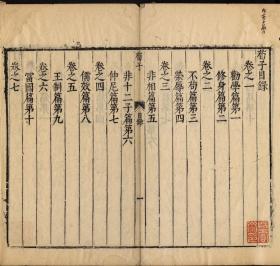 荀子目錄
卷之一
勸學篇第一
修身篇第二
卷之二
不苟篇第三
榮辱篇第四
卷之三
非相篇第五
荀子
目錄
一
非十二子篇第六
仲尼篇第七
卷之四
儒效篇第八
卷之五
王制篇第九
卷之六
富國篇第十
卷之七